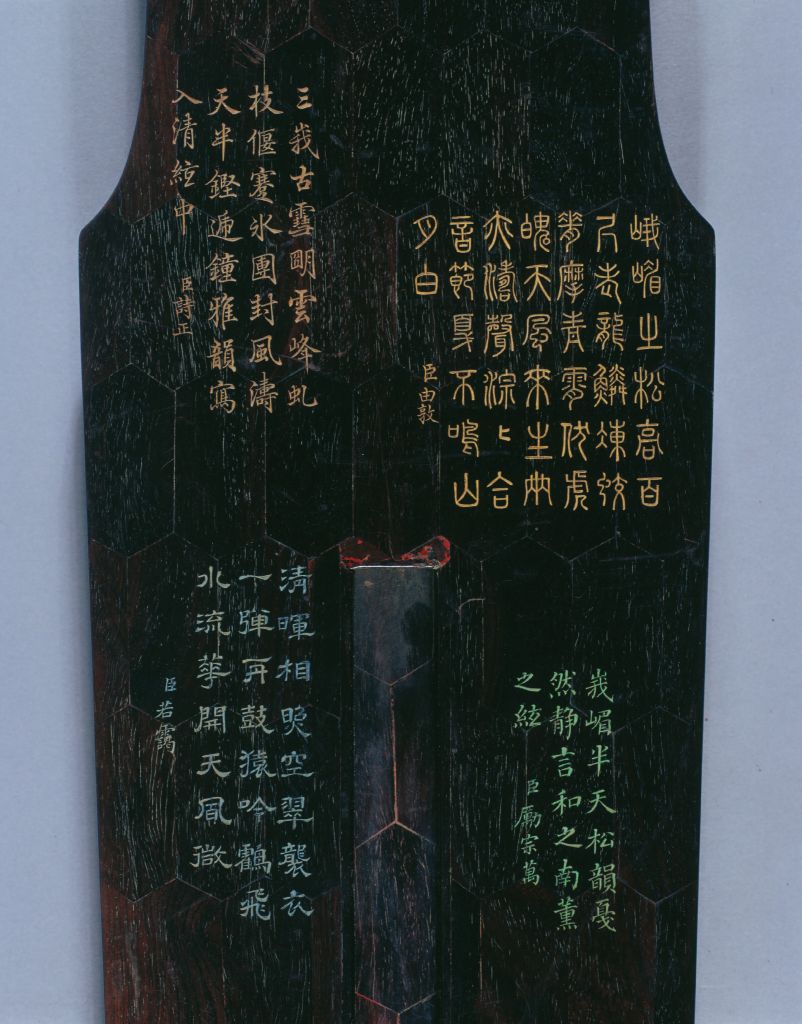 峨嵋之松高百
龍鱗
摩青虎
魄天風來生
濤聲淙〻合
音節不鳴山
月白
臣由敦
三峩古雪眀雲峰虬
枝偃蹇氷團封風濤
天半鏗遞鐘雅韻寫
入清絃中
臣詩正
峩嵋半天松韻戛
然静言和之南薰
之絃
臣勵宗萬
清暉相映空翠襲衣
一彈再鼓猿吟鶴飛
水流華開天風微
臣若靄